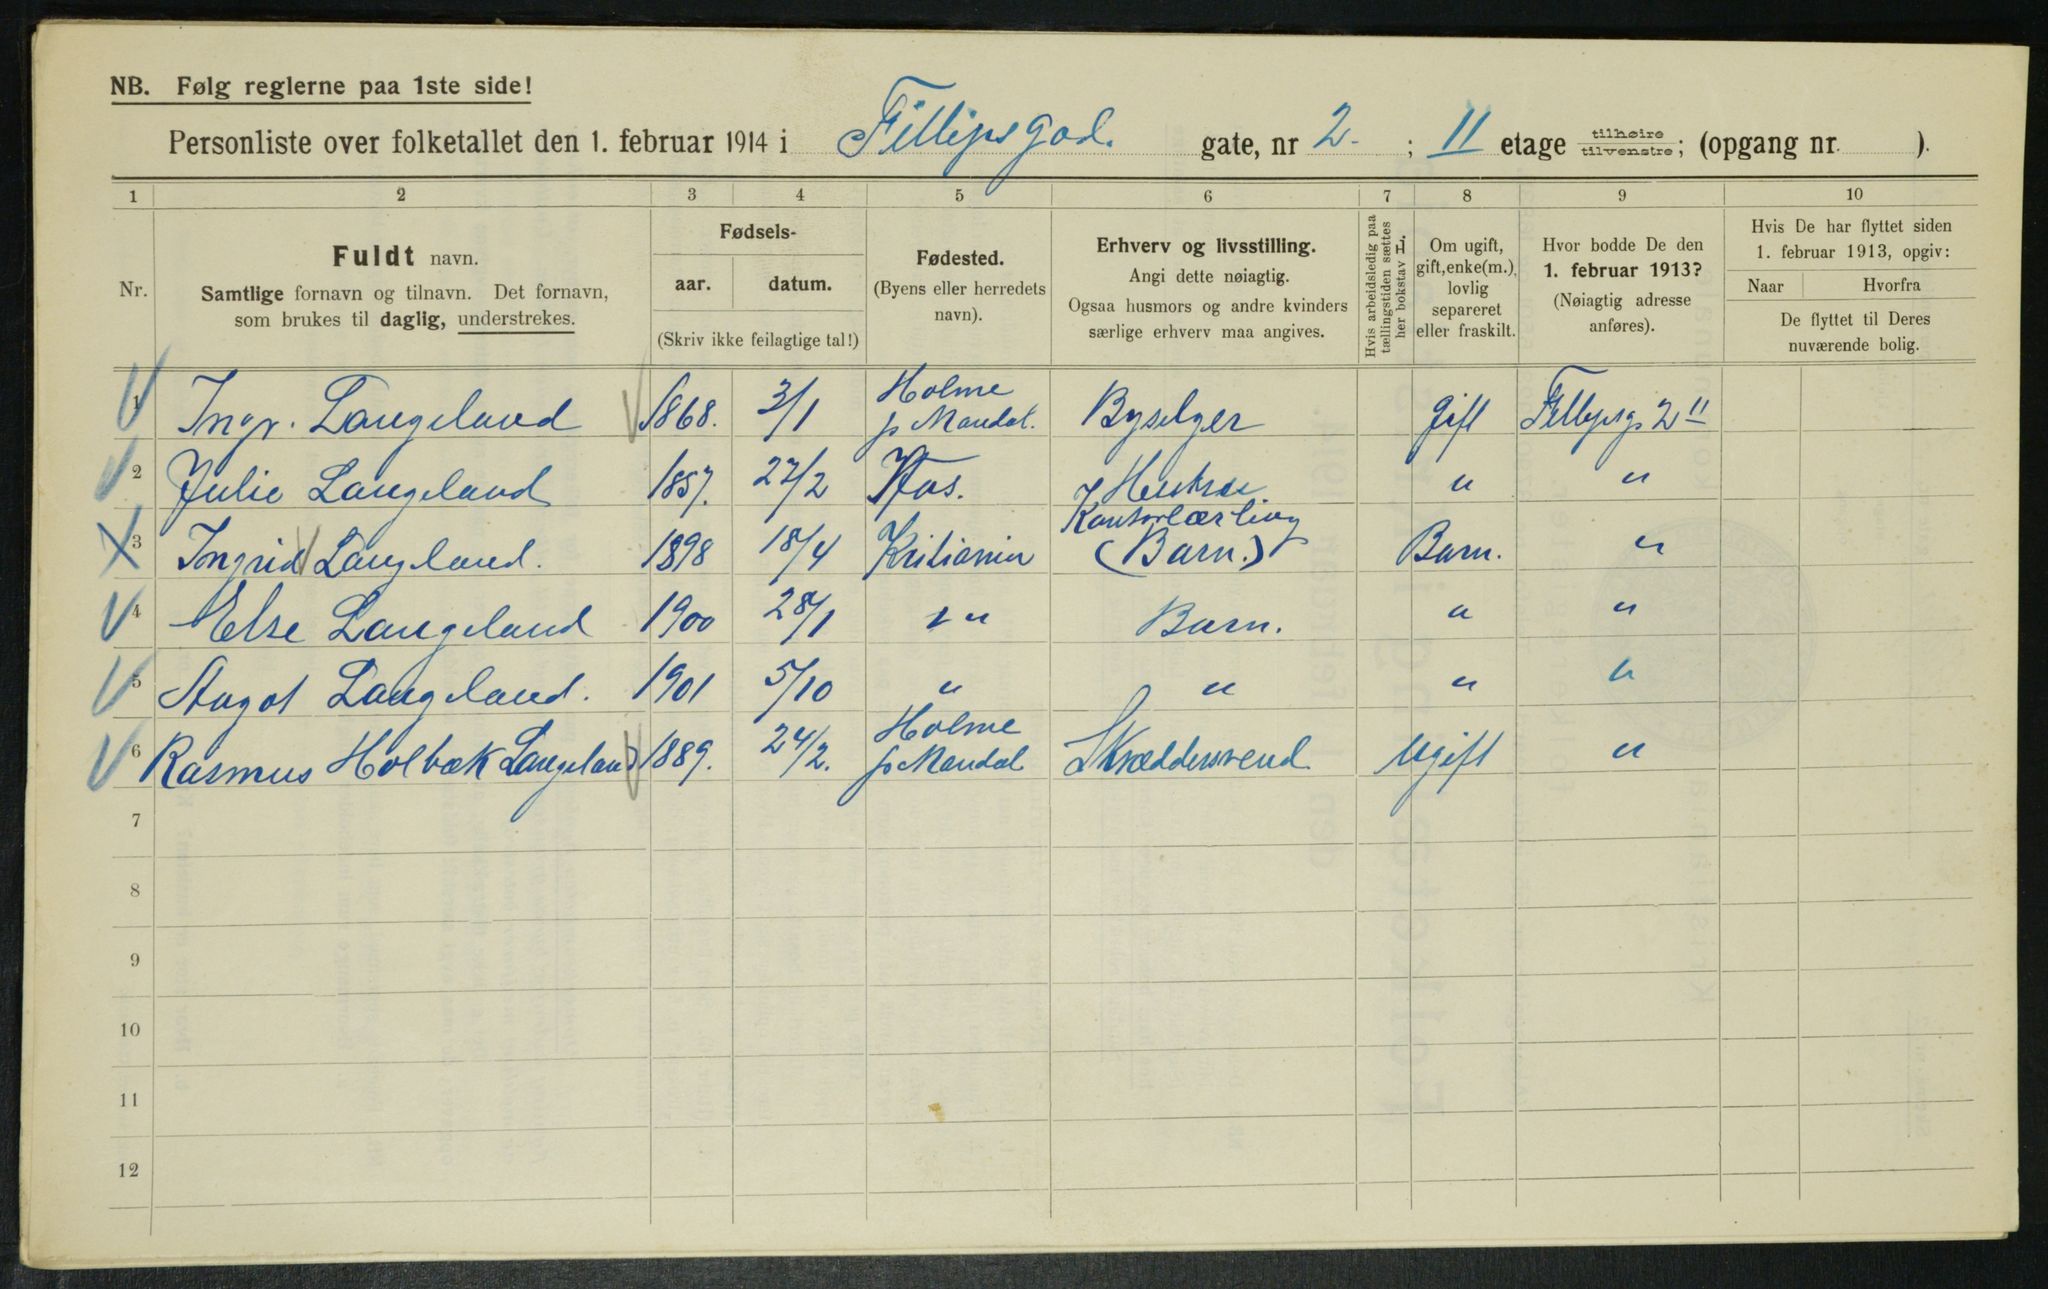 NB. Følg reglerne paa 1ste side!
Personliste over folketallet den 1. februar 1914 i Fillipsgad. gate, nr 2. ; II etage tilhøire tilvenstre; (opgang nr. ).
1 2 3 4 5 6 7 8 9 10
Nr.
Fuldt navn.
Samtlige fornavn og tilnavn. Det fornavn,
som brukes til daglig, understrekes.
Fødsels-
aar. datum.
(Skriv ikke feilagtige tal!)
Fødested.
(Byens eller herredets
navn).
Erhverv og livsstilling.
Angi dette nøiagtig.
Ogsaa husmors og andre kvinders
særlige erhverv maa angives.
Hvis arbeidsledig paa
tællingstiden sættes
her bokstav L.
Om ugift,
gift, enke(m.),
lovlig
separeret
eller fraskilt.
Hvor bodde De den
1. februar 1913?
(Nøiagtig adresse
anføres).
Hvis De har flyttet siden
1. februar 1913, opgiv:
Naar Hvorfra
De flyttet til Deres
nuværende bolig.
1 Ingv. Langeland 1868. 3/1 Holme p Mandal. Byselger gift Fillipsg 2 II
2 Julie Langeland 1857. 27/2 Hustru " "
3 Ingrid Langeland. 1898 18/4 Kristiania Kontorlærling (Barn.) Barn. "
4 Else Langeland 1900 28/1 " " Barn. " "
5 Aagot Langeland. 1901 5/10 " " " "
6 Rasmus Holbæk Langeland 1889. 24/2. Holme p Mandal Skræddersvend Ugift "
7
8
9
10
11
12